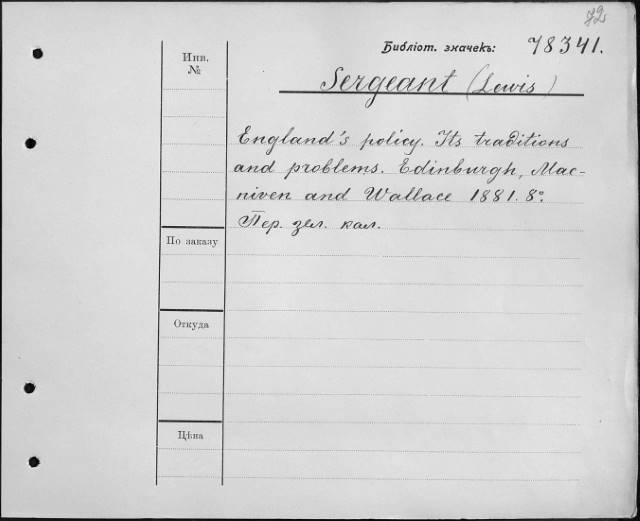 92
Библіот. значекъ: 78341.
Инв.
№
Sergeant (Lewis)
England's policy. Its traditions
and problems. Edinburgh, Mac-
niven and Wallace 1881. 8°.
Пер. зел. кал.
По заказу
Откуда
Цѣна